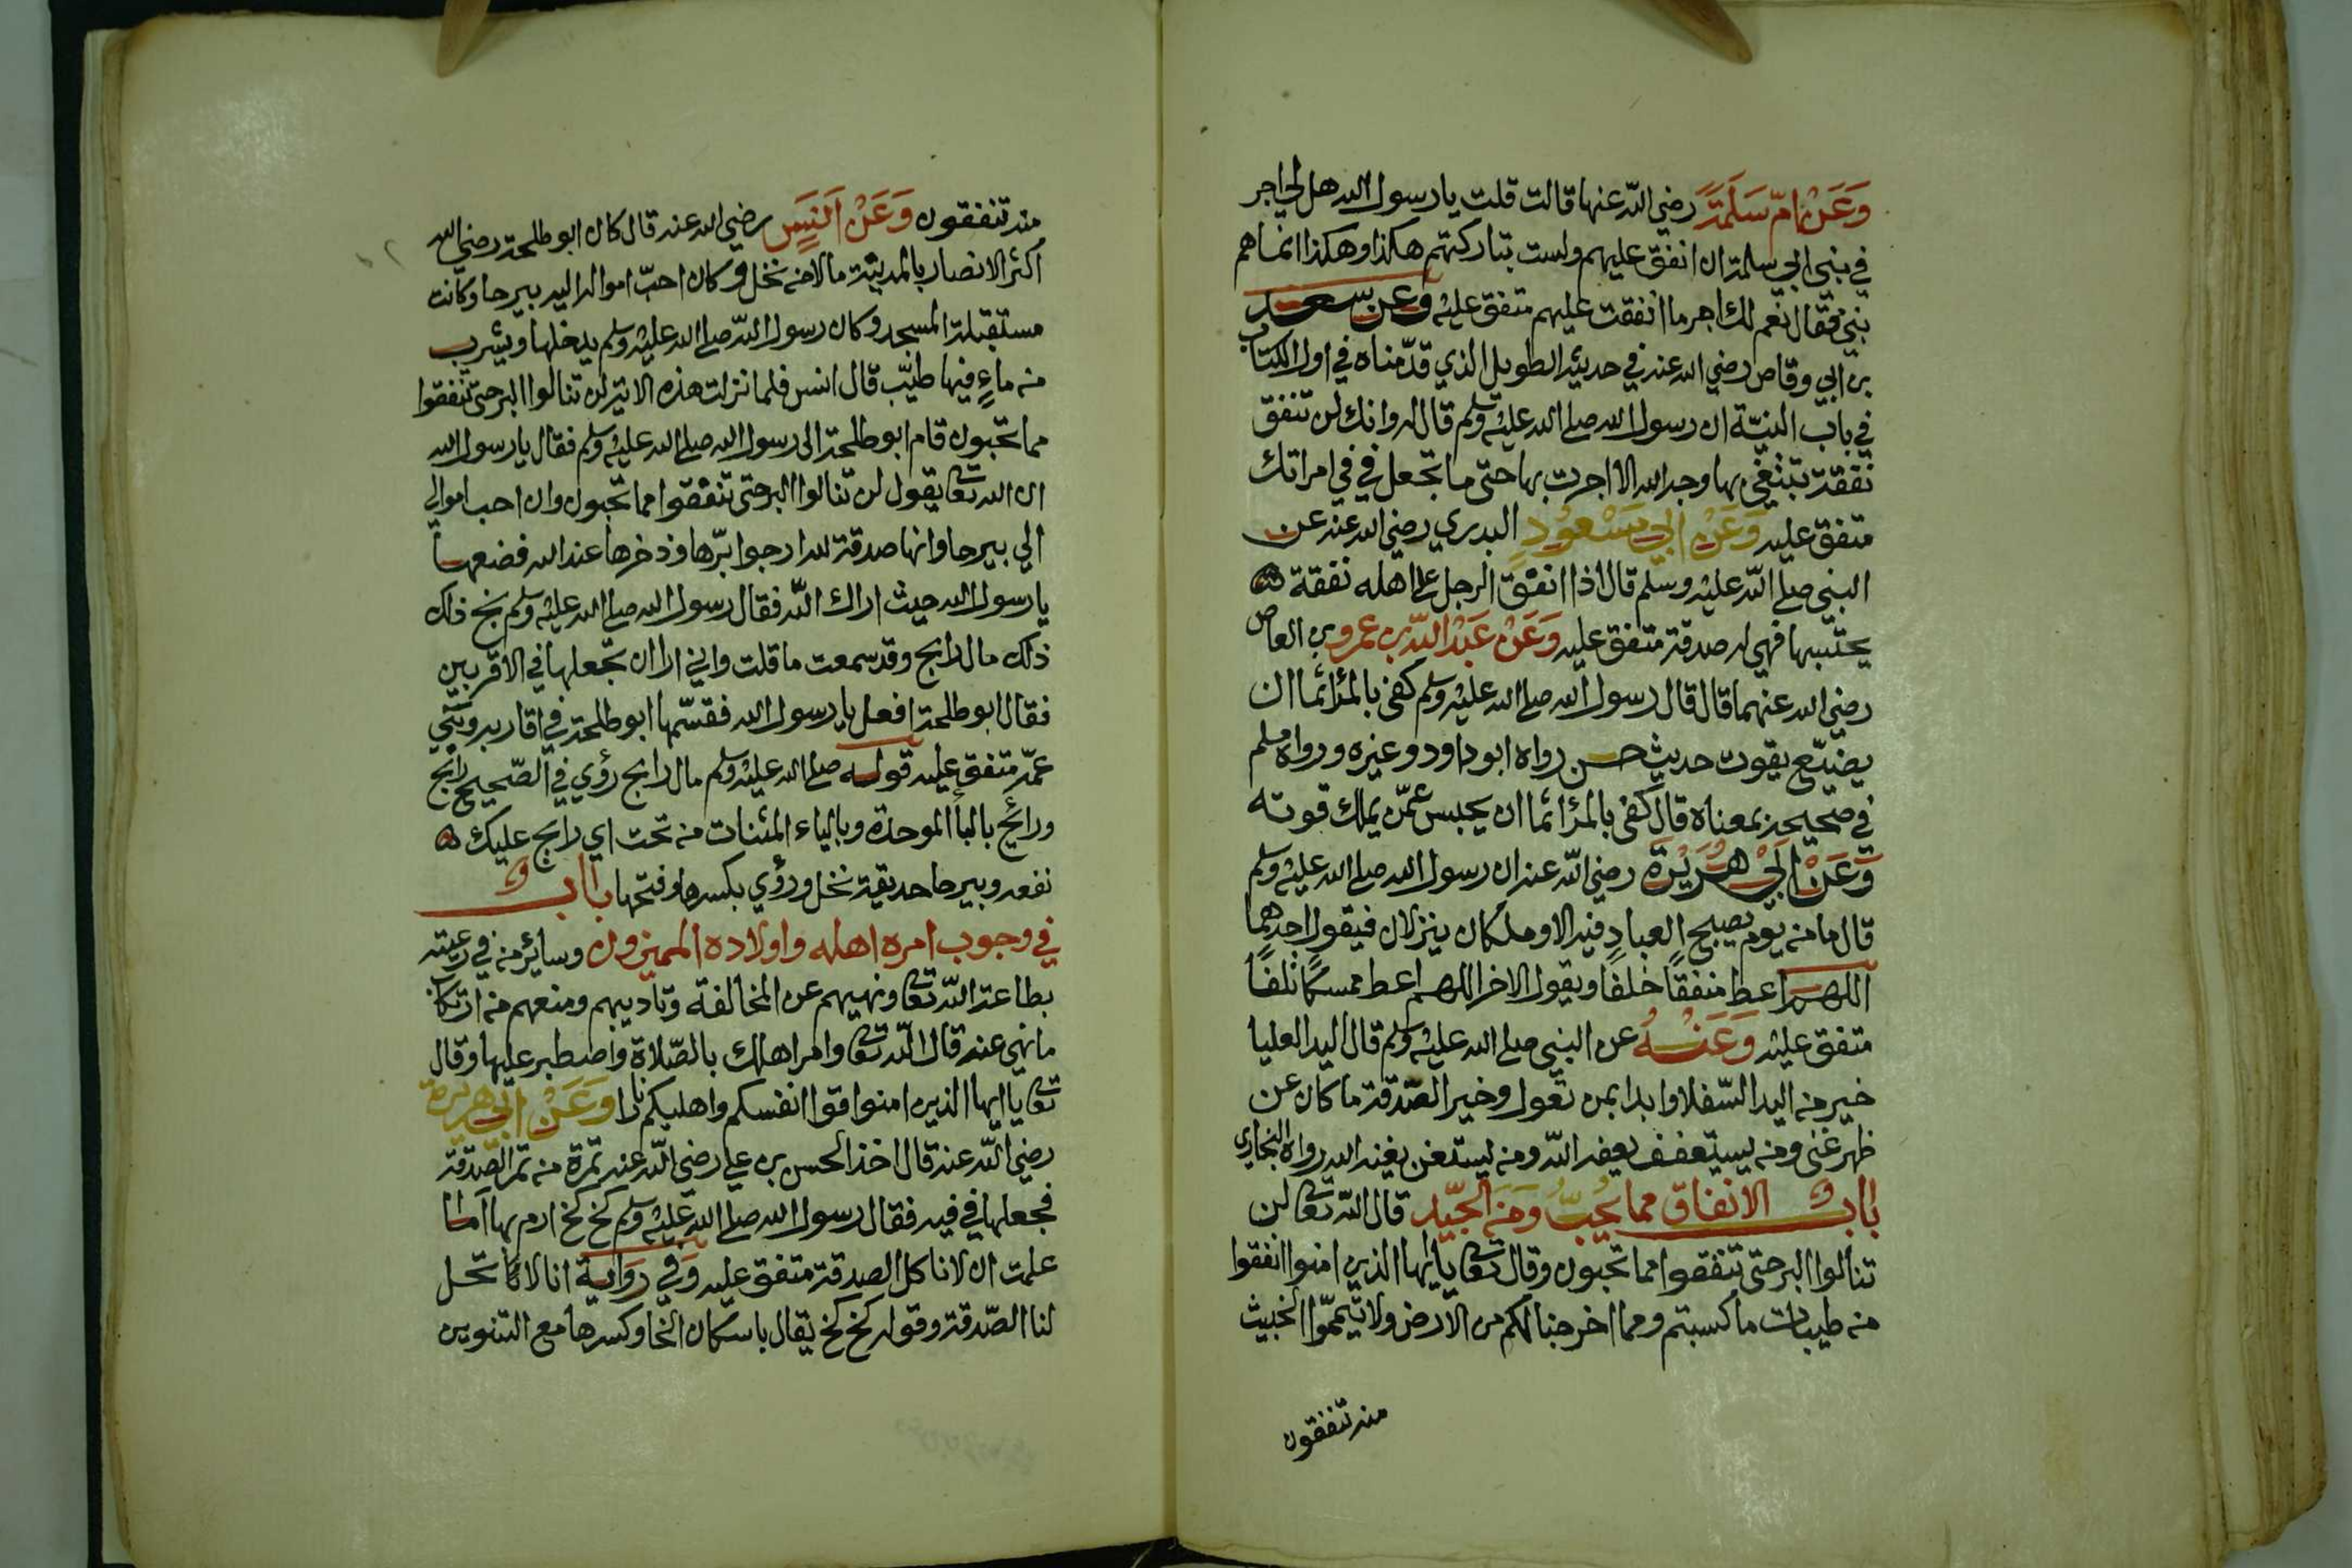 وَعَنْ امّ سَلَمَةَ رضي اللّه عنها قالت قلت يا رسول الله هل لي اجر
في بني ابي سلمة ان انفق عليهم ولست بتاركتهم هكذا وهكذا انما هم
بنيّ فقال نعم لك اجر ما انفقت عليهم متفق عليه وعن سعد
بن ابي وقاص رضي الله عنه في حديثه الطويل الذي قدّمناه في اول الكتاب
في باب النيّة ان رسول الله صلى الله عليه وسلم قال له وانك لن تنفق
نفقة تبتغي بها وجه الله الا اجرت بها حتى ما تجعل في في امراتك
متفق عليه وَعَنْ ابي مَسْعُودٍ البدري رضي الله عنه عن
النبي صلى اللّه عليه وسلم قال اذا انفق الرجل على اهله نفقة
يحتسبها فهي له صدقة متفق عليه وَعَنْ عَبْدُ اللّه بن عمرو بن العاص
رضي الله عنهما قال قال رسول الله صلى الله عليه وسلم كفى بالمرء اثما ان
يضيّع يقوت حديث حسن رواه ابو داود وغيره ورواه مسلم
في صحيحه بمعناه قال كفى بالمرء اثما ان يحبس عمّن يملك قوته
وَعَنْ ابَيْ هُرَيْرَةَ رضي اللّه عنه ان رسول الله صلى الله عليه وسلم
قال ما من يوم يصبح العبادِ فيه الا وملكان ينزلان فيقول احدهما
اللهم اعط منفقاً خلفا ويقول الاخر اللهم اعط ممسكاً تلفاً
متفق عليه وَعَنْهُ عن النبي صلى الله عليه وسلم قال اليد العليا
خير من اليد السّفلا وابدا بمن تعول وخير الصّدقة ما كان عن
ظهر غنى ومن يستعفف يعفه اللّه ومن يستغن يغنه الله رواه البخاري
باب الانفاق مما يُحبُّ وَمنَ الجيّد قال اللّه تعا لن
تنالوا البر حتى تنفقوا مما تحبون وقال تعا يا ايها الذين امنوا انفقوا
من طيبات ما كسبتم ومما اخرجنا لكم من الارض ولا تيمموّا الخبيث
منه تنفقون
منه تنفقون وَعَنْ اَنَسٍ رضي الله عنه قال كان ابو طلحة رضي الله
اكثر الانصار بالمدينة مالا من نخل وكان احبّ امواله اليه بيرحا وكانت
مستقبلة المسجد وكان رسول اللّه صلى الله عليه وسلم يدخلها ويشرب
من ماءٍ فيها طيّب قال انس فلما نزلت هذه الاية لن تنالوا البر حتى تنفقوا
مما تحبون قام ابو طلحة الى رسول الله صلى الله عليه وسلم فقال يا رسول الله
ان الله تعا يقول لن تنالوا البر حتى تنفقوا مما تحبون وان احب اموالي
الي بيرحا وانها صدقة لله ارجوا برّها وذخرها عند الله فضعها
يا رسول الله حيث اراك اللّه فقال رسول الله صلى الله عليه وسلم بخ ذلك
ذلك مال رابح وقد سمعت ما قلت واني ارا ان تجعلها في الاقربين
فقال ابو طلحة افعل يا رسول الله فقسّمها ابو طلحة في اقاربه وبني
عمّه متفق عليه قوله صلى الله عليه وسلم مال رابح رؤي في الصّحيح رابح
ورائح بالبا الموحدة وبالياء المثنات من تحت اي رايح عليك
نفعه وبيرحا حديقة نخل ورؤي بكسرها وفتحها باب
في وجوب امره اهله واولاده المميزون وسائر من في رعيته
بطاعة اللّه تعا ونهيهم عن المخالفة وتاديبهم ومنعهم من ارتكاب
ما نهي عنه قال اللّه تعا وامر اهلك بالصّلاة واصطبر عليها وقال
تعا يا ايها الذين امنوا قوا انفسكم واهليكم نارا وَعَنْ ابي هريرة
رضي اللّه عنه قال اخذ الحسن بن علي رضي اللّه عنه تمرة من تمر الصّدقة
فجعلها في فيه فقال رسول الله صلى الله عليه وسلم كخ كخ ارم بها اما
علمت ان لا ناكل الصدقة متفق عليه وَفي رَواية انا لا تحل
لنا الصّدقة وقوله كخ كخ يقال باسكان الخا وكسرها مع التنوين